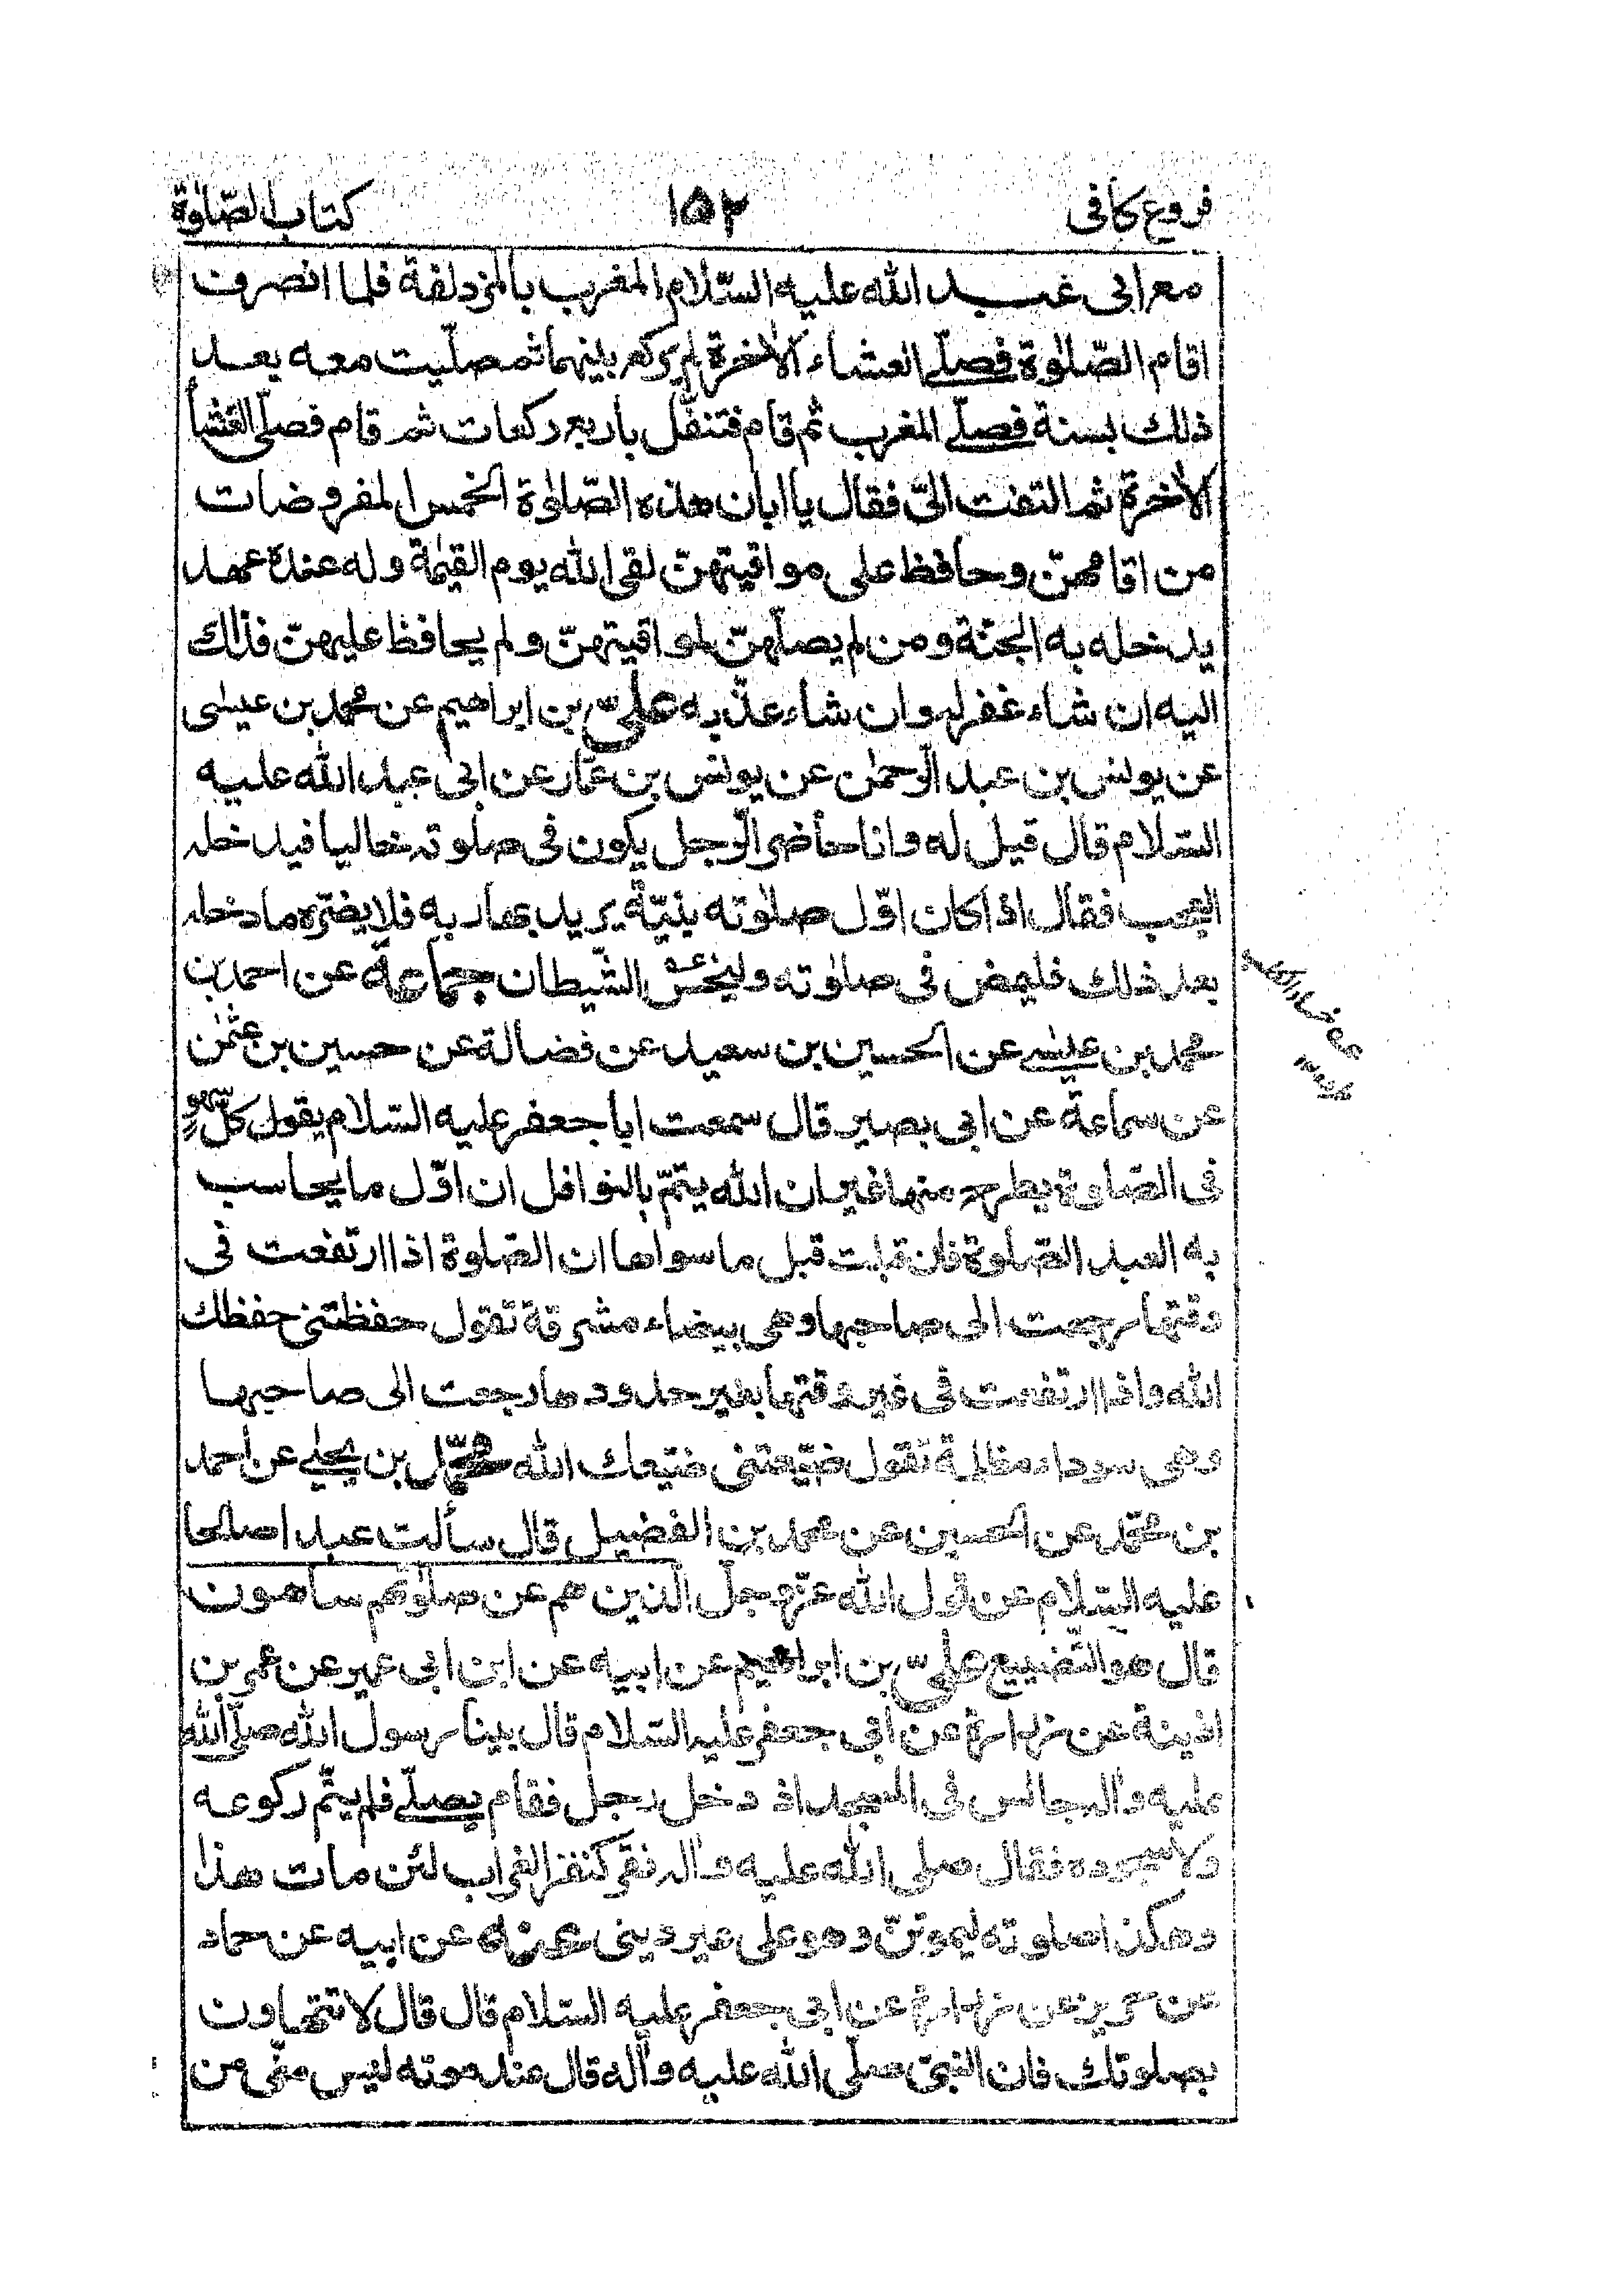 فروع كافى ١٥٢ كتاب الصّلوة
مع ابى عبد الله عليه السّلام المغرب بالمزدلفة فلما انصرف
اقام الصّلوة فصلّى العشاء الآخرة لم يركع بينهما ثم صلّيت معه بعد
ذلك بسنة فصلّى المغرب ثم قام فتنفّل باربع ركعات ثم قام فصلّى العشاء
الآخرة ثم التفت الىّ فقال يا ابان هذه الصّلوة الخمس المفروضات
من اقامهنّ وحافظ على مواقيتهنّ لقى الله يوم القيمة وله عنده عهد
يدخله به الجنّة ومن لم يصلّهنّ لمواقيتهنّ ولم يحافظ عليهنّ فذلك
اليه ان شاء غفر له وان شاء عذّبه علىّ بن ابراهيم عن محمد بن عيسى
عن يونس بن عبد الرّحمن عن يونس بن عمّار عن ابى عبد الله عليه
السّلام قال قيل له وانا حاضر الرّجل يكون فى صلوته خاليا فيدخله
العجب فقال اذا كان اوّل صلوته بنيّة يريد بها ربه فلا يضرّه ما دخله
بعد ذلك فليمض فى صلوته وليخس الشّيطان جماعة عن احمد بن
محمد بن عيسى عن الحسين بن سعيد عن فضالة عن حسين بن عثمن
عن سماعة عن ابى بصير قال سمعت ابا جعفر عليه السّلام يقول كلّ سهو
فى الصّلوة يطرح منها غير ان الله يتمّ بالنوافل ان اوّل ما يحاسب
به العبد الصّلوة فان قبلت قبل ما سواها ان الصّلوة اذا ارتفعت فى
وقتها رجعت الى صاحبها وهى بيضاء مشرقة تقول حفظتنى حفظك
الله واذا ارتفعت فى غير وقتها بغير حدودها رجعت الى صاحبها
وهى سوداء مظلمة تقول ضيّعتنى ضيّعك الله محمّد بن يحيى عن احمد
بن محمّد عن الحسين عن محمد بن الفضيل قال سألت عبدا صالحا
عليه السّلام عن قول الله عزّ وجلّ الّذين هم عن صلوتهم ساهون
قال هو التّضييع علىّ بن ابراهيم عن ابيه عن ابن ابى عمير عن عمر بن
اذينة عن زرارة عن ابى جعفر عليه السّلام قال بينا رسول الله صلّى الله
عليه وآله جالس فى المسجد اذ دخل رجل فقام يصلّى فلم يتمّ ركوعه
ولا سجوده فقال صلى الله عليه وآله نقر كنقر الغراب لئن مات هذا
وهكذا صلوته ليموتنّ وهو على غير دينى عنه عن ابيه عن حماد
عن حريز عن زرارة عن ابى جعفر عليه السّلام قال قال لا تتهاون
بصلوتك فان النبىّ صلّى الله عليه وآله قال عند موته ليس منّى من